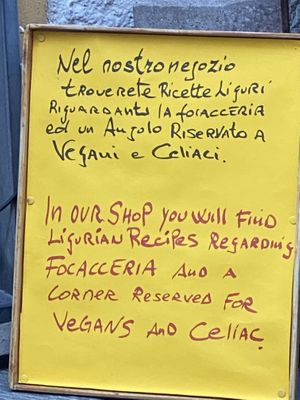 Nel nostro negozio
troverete Ricette Liguri
Riguardanti la focacceria
ed un Angolo Riservato a
Vegani e Celiaci.
In our shop you will find
Ligurian Recipes Regarding
Focacceria and a
corner reserved for
Vegans and Celiac.